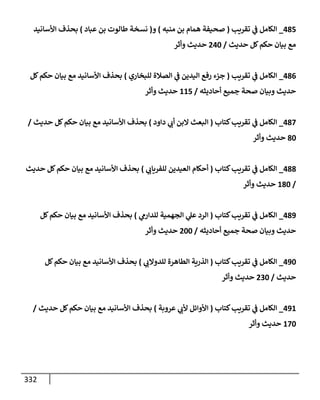 485_ الكامل في تقريب ( صحيفة همام بن منبه ) و( نسخة طالوت بن عباد ) بحذف الأسانيد
مع بيان حكم كل حديث / 240 حديث وأثر
486_ الكامل في تقريب ( جزء رفع اليدين في الصلاة للبخاري ) بحذف الأسانيد مع بيان حكم كل
حديث وبيان صحة جميع أحاديثه / 115 حديث وأثر
487_ الكامل في تقريب كتاب ( البعث لابن أبي داود ) بحذف الأسانيد مع بيان حكم كل حديث /
80 حديث وأثر
488_ الكامل في تقريب كتاب ( أحكام العيدين للفريابي ) بحذف الأسانيد مع بيان حكم كل حديث
/ 180 حديث وأثر
489_ الكامل في تقريب كتاب ( الرد علي الجهمية للدارمي ) بحذف الأسانيد مع بيان حكم كل
حديث وبيان صحة جميع أحاديثه / 200 حديث وأثر
490_ الكامل في تقريب كتاب ( الذرية الطاهرة للدولابي ) بحذف الأسانيد مع بيان حكم كل
حديث / 230 حديث وأثر
491_ الكامل في تقريب كتاب ( الأوائل لأبي عروبة ) بحذف الأسانيد مع بيان حكم كل حديث /
170 حديث وأثر
332